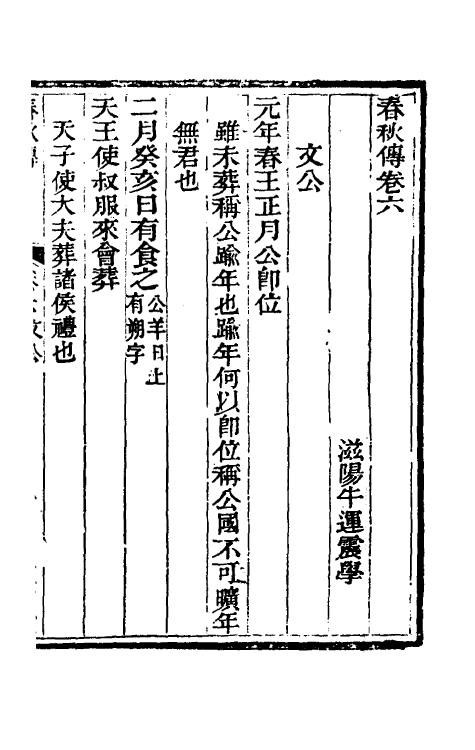 春秋傳卷六
滋陽牛運震學
文公
元年春王正月公卽位
雖未葬稱公踰年也踰年何以卽位稱公國不可曠年
無君也
二月癸亥日有食之公羊日上有朔字
天王使叔服來會葬
天子使大夫葬諸侯禮也
春秋傳